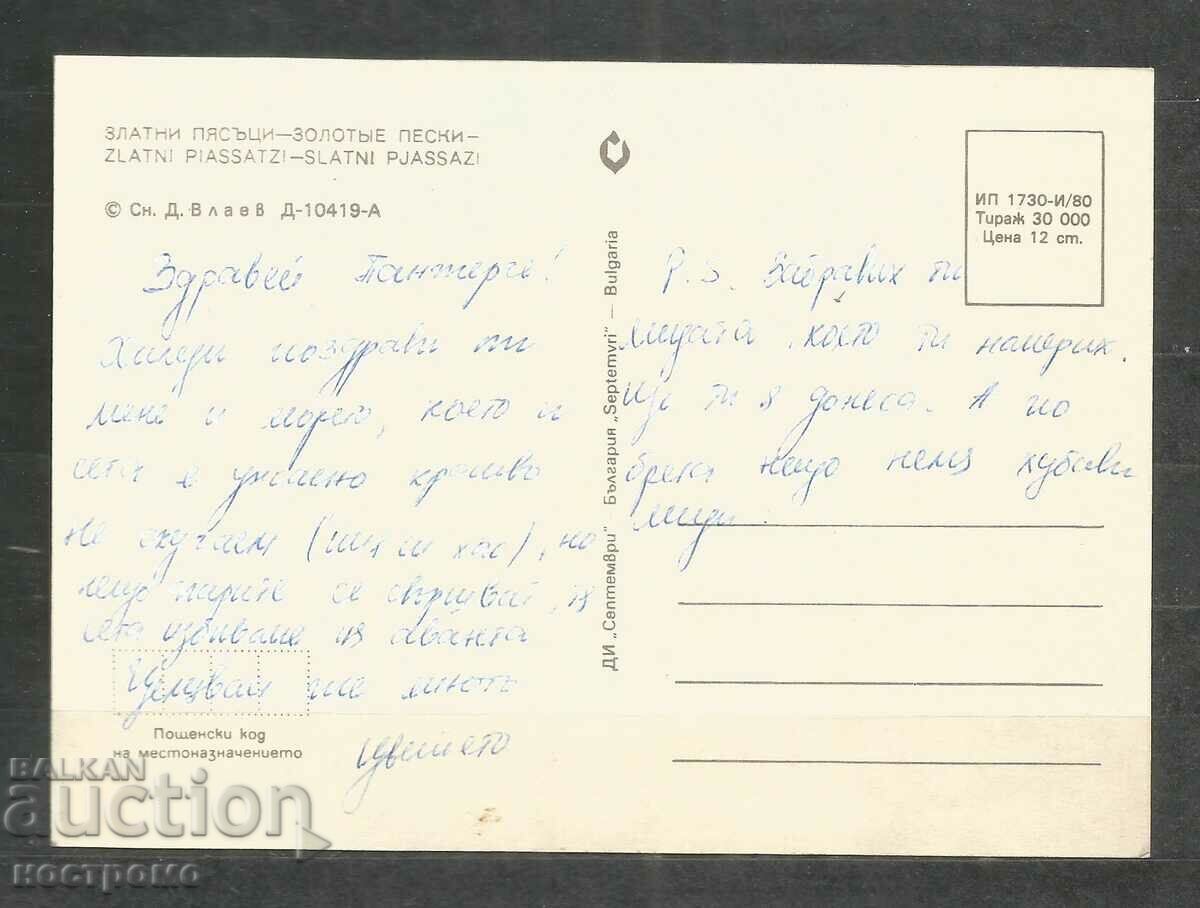 ЗЛАТНИ ПЯСЪЦИ—ЗОЛОТЫЕ ПЕСКИ—
ZLATNI PIASSATZI—SLATNI PJASSAZI
© Сн. Д. Влаев Д-10419-А
Здравей Пантерче!
Хиляди поздрави ти
мене и морето, което и
сега е ужасно красиво
Не скучаем (ни), но
нещо парите се свършват, та
сега избиваме из аванта
Целувай ме
Цветето
Пощенски код
на местоназначението
ДИ „Септември" България „Septemvri" — Bulgaria
ИП 1730-И/80
Тираж 30 000
Цена 12 ст.
P.S. Забравих ти
мидата, която ти намерих.
Ще ти я донеса. А по
брега нещо няма хубави
миди.
BALKAN
auction
костромо